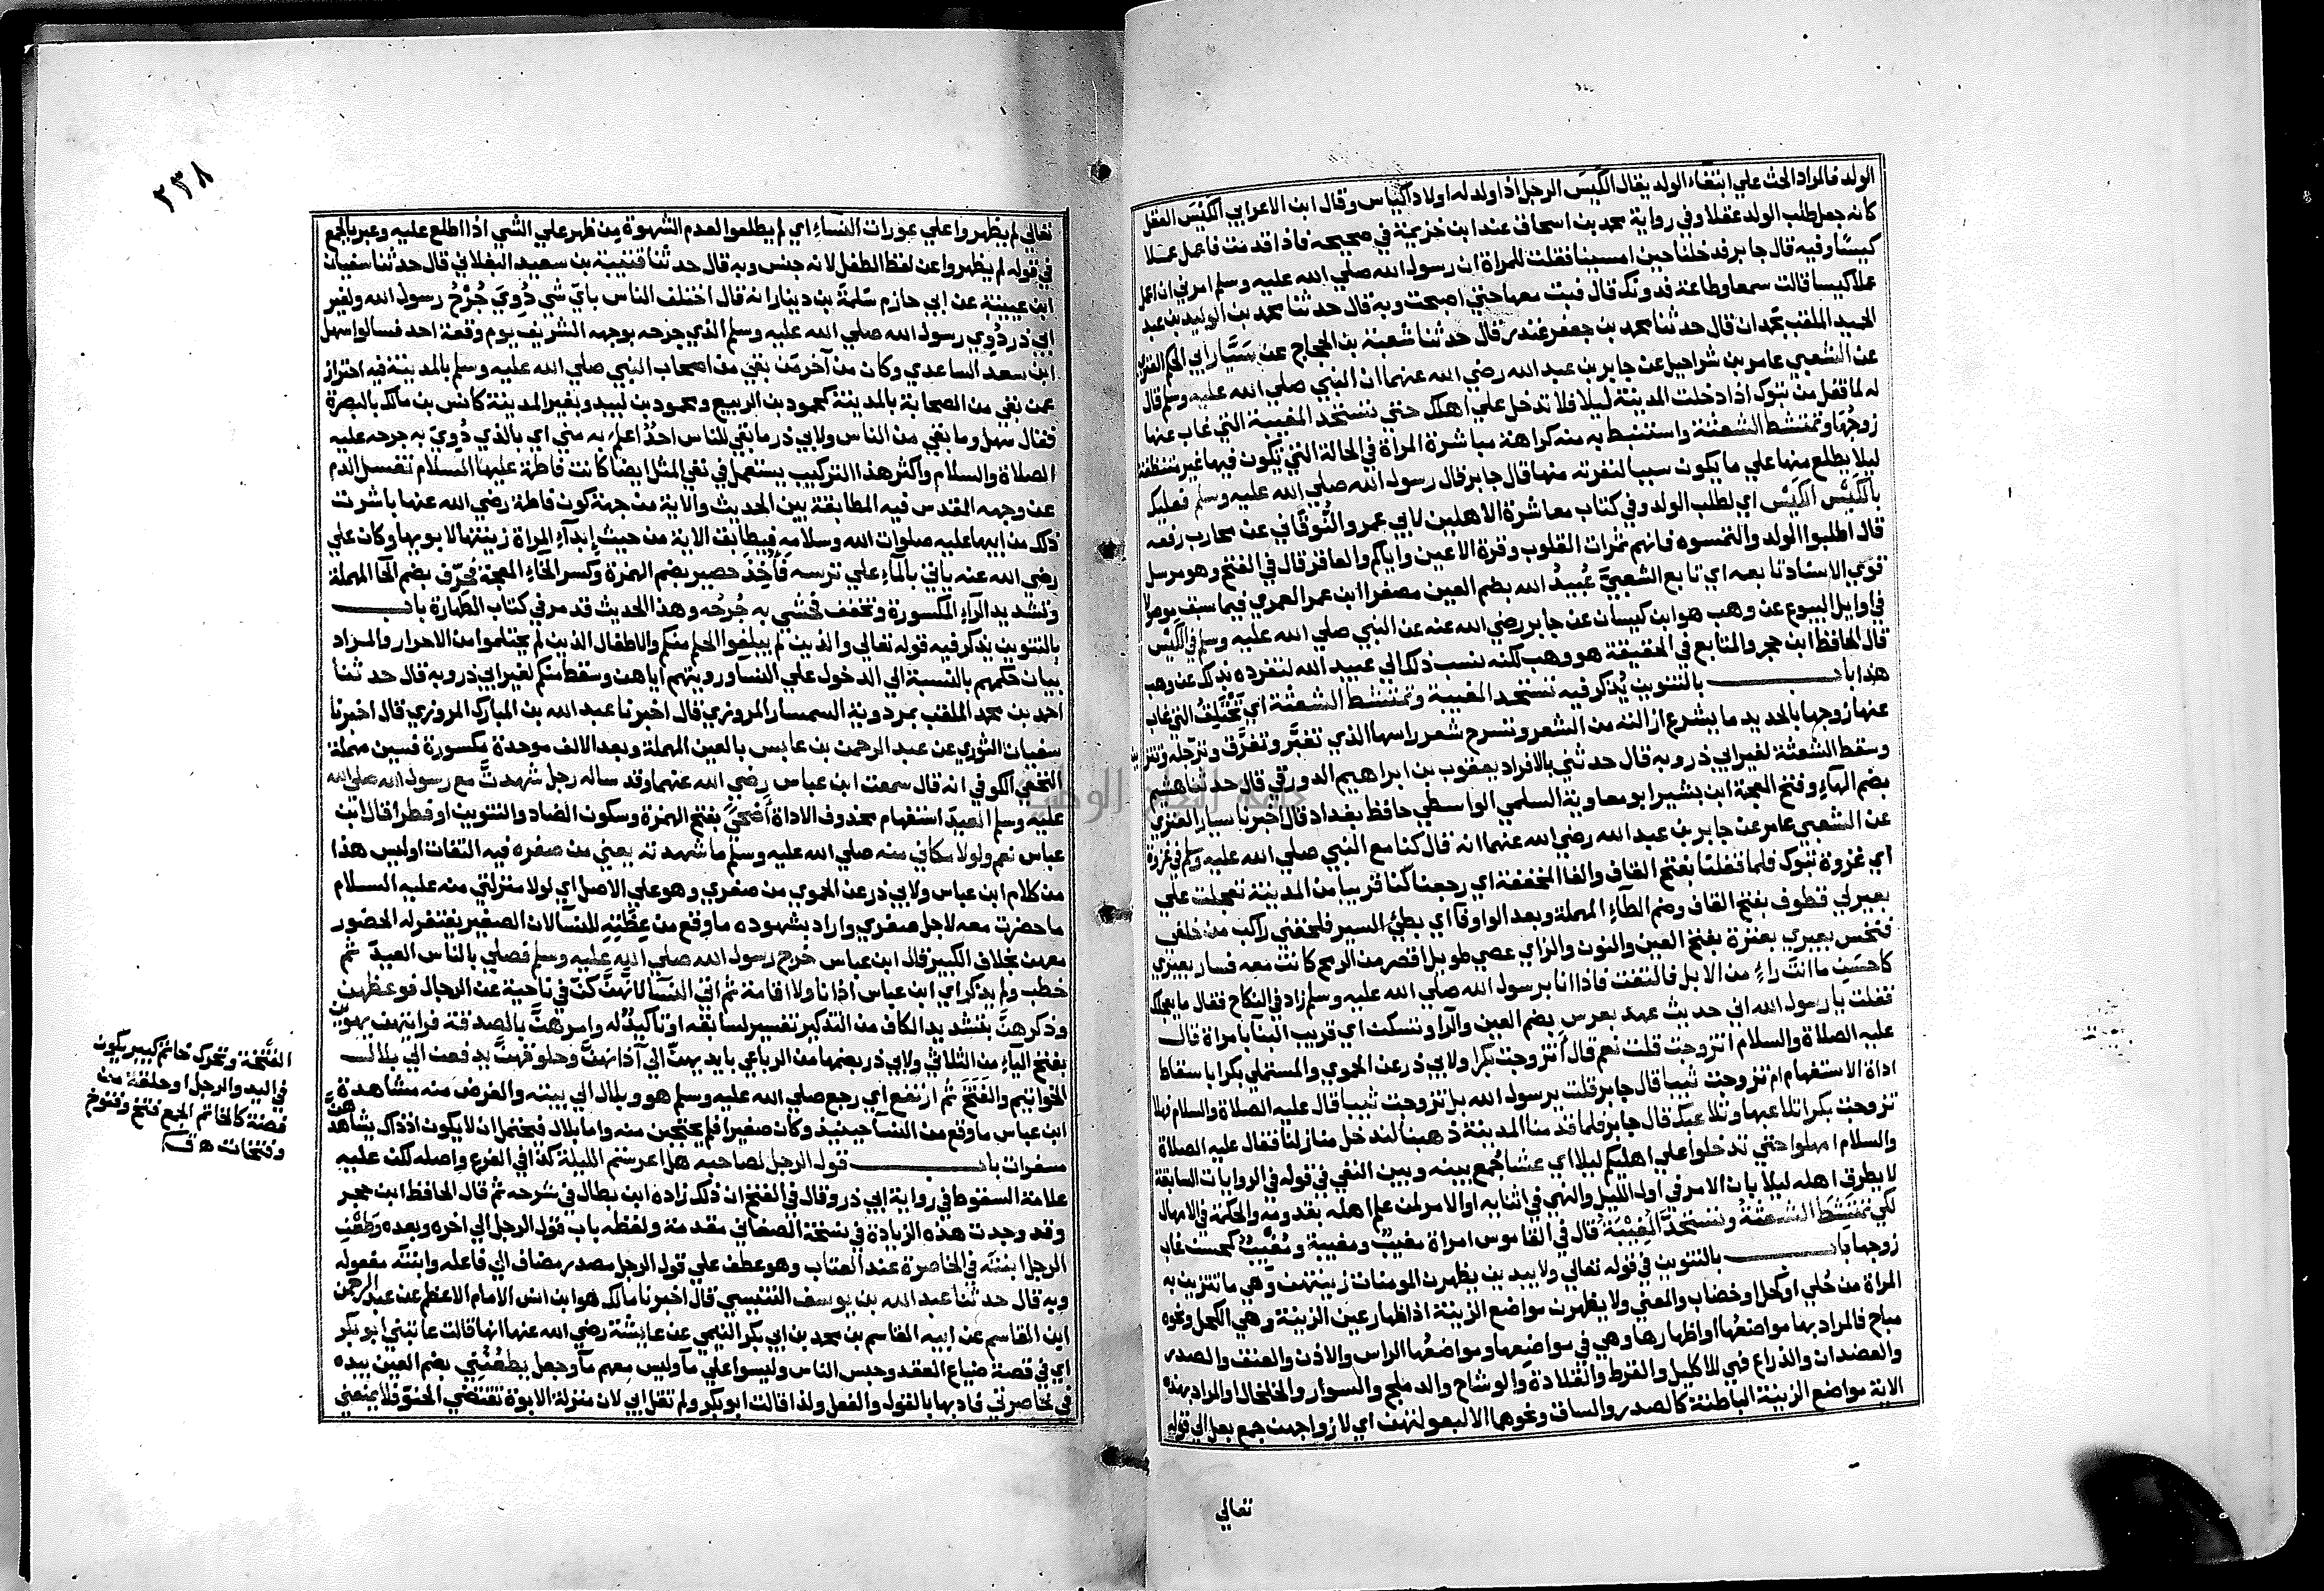 الولد فالمراد الحث علي ابتغاء الولد يقال اكيس الرجل اذا ولد له اولاد اكياس وقال ابن الاعرابي الكيس العقل
كانه جعل طلب الولد عقلا وفي رواية محمد بن اسحاق عند ابن خزيمة في صحيحه فاذا قدمت فاعمل عملا
كيسا وفيه قال جابر فدخلنا حين امسينا فقلت للمراة ان رسول الله صلي الله عليه وسلم امرني ان اعمل
عملا كيسا قالت سمعا وطاعة فدونك قال فبت معها حتي اصبحت وبه قال حدثنا محمد بن الوليد بن عبد
الحميد الملقب بحمدان قال حدثنا محمد بن جعفر غندر قال حدثنا شعبة بن الحجاج عن سَيَّار ابي الحكم العنزي
عن الشعبي عامر بن شراحيل عن جابر بن عبد الله رضي الله عنهما ان النبي صلي الله عليه وسلم قال
له لما قفل من تبوك اذا دخلت المدينة ليلا فلا تدخل علي اهلك حتي تستحد المغيبة التي غاب عنها
زوجُها وتمتشط الشعثة واستنبط به منه كراهة مباشرة المراة في الحالة التي تكون فيها غير متنظفة
ليلا يطلع منها علي ما يكون سببا لنفرته منها قال جابر قال رسول الله صلي الله عليه وسلم فعليك
بالكَيْس الكَيْس اي لطلب الولد وفي كتاب معاشرة الاهلين لابي عمرو النُّوقَاني عن محارب رفعه
قال اطلبوا الولد والتمسوه فانهم ثمرات القلوب وقرة الاعين واياكم والعاقر قال في الفتح وهو مرسل
قوي الاسناد تابعه اي تابع الشعبيَّ عُبيدُ الله بضم العين مصغرا ابن عمر العمري فيما سبق موصولا
في اوايل البيوع عن وهب هو ابن كيسان عن جابر رضي الله عنه عن النبي صلي الله عليه وسلم في الكَيْس
قال الحافظ ابن حجر والمتابع في الحقيقة هو وهب لكنه نسب ذلك الي عبيد الله لتفرده بذلك عن وهب
هذا باب بالتنوين يُذكر فيه تستحد المغيبة وتمتشط الشعثة اي تَحْتَلِقُ التي غاب
عنها زوجها بالحديد ما يشرع ازالته من الشعر وتسرح شعر راسها الذي تغبَّر وتفرَّق وترجّله وتتزين
وسقط الشعثة لغير ابي ذر وبه قال حدثني بالافراد يعقوب بن ابراهيم الدورقي قال حدثنا هشيم
بضم الهاء وفتح المعجمة ابن بشير ابو معاوية السلمي الواسطي حافظ بغداد قال اخبرنا سيار العنزي
عن الشعبي عامر عن جابر بن عبد الله رضي الله عنهما انه قال كنا مع النبي صلي الله عليه وسلم في غزوة
اي غزوة تبوك فلما قفلنا بفتح القاف والفا المخففة اي رجعنا كنا قريبا من المدينة تعجلت علي
بعير لي قطوف بفتح القاف وضم الطاء المهملة وبعد الواو فا اي بطيء السير فلحقني راكب من خلفي
فنخس بعيري بعنزة بفتح العين والنون والزاي عصي طويل اقصر من الرمح كانت معه فسار بعيري
كاحسَن ما انت راءٍ من الابل فالتفت فاذا انا برسول الله صلي الله عليه وسلم زاد في النكاح فقال ما يعجلك
فقلت يا رسول الله اني حديث عهد بعرس بضم العين والرآء وتسكن اي قريب البنا بامراة قال
عليه الصلاة والسلام اتزوجت قلت نعم قال أتزوجت بكرا ولابي ذر عن الحموي والمستملي بكرا باسقاط
اداة الاستفهام ام تزوجت ثيبا قال جابر قلت يرسول الله بل تزوجت ثيبا قال عليه الصلاة والسلام فهلا
تزوجت بكرا تلاعبها وتلاعبك قال جابر فلما قدمنا المدينة ذهبنا لندخل منازلنا فقال عليه الصلاة
والسلام امهلوا حتي تدخلوا علي اهليكم ليلا اي عشا جُمع بينه وبين النفي في قوله في الروايات السابقة
لا يطرق اهله ليلا بان الامر في اول الليل والنهي في اثنايه او الامر لمن علم اهله بقدومه والحكمة في الامهال
لكي تمتشطَ الشعثةُ وتستحدَّ المُغِيْبَةُ قال في القاموس امراة مغيبٌ ومغيبة ومُغْيِبٌ كمحسن غاب
زوجها باب بالتنوين في قوله تعالي ولا يبدين يظهرن المومنات زينتهن وهي ما تتزين به
المراة من حُلي او كحل او خضاب والمعني ولا يظهرن مواضع الزينة اذ اظهار عين الزينة وهي الكحل ونحوه
مباح فالمراد بها مواضعُها او اظهارها وهي في مواضعها ومواضعُها الراس والاذن والعنق والصدر
والعضدان والذراع فهي للاكليل والقرط والقلادة والوشاح والدملج والسوار والخلخال والمراد بهذه
الاية مواضع الزينة الباطنة كالصدر والساق ونحوهما الا لبعولتهن اي لازواجهن جمع بعل الي قوله
تعالي
٢٣٨
تعالي لم يظهروا علي عورات النساء اي لم يطلعوا لعدم الشهوة من ظهر علي الشي اذا اطلع عليه وعبر بالجمع
في قوله لم يظهروا عن لفظ الطفل لانه جنس وبه قال حدثنا قتيبة بن سعيد البغلاني قال حدثنا سفيان
ابن عيينة عن ابي حازم سَلمَة بن دينار انه قال اختلف الناس بايّ شي دُوِيَ جُرْحُ رسول الله ولغير
ابي ذر دُوِي رسول الله صلي الله عليه وسلم الذي جرحه بوجهه الشريف يوم وقعة احد فسالوا سهل
ابن سعد الساعدي وكان من آخر مَن بقي من اصحاب النبي صلي الله عليه وسلم بالمدينة فيه احتراز
عمن بقي من الصحابة بالمدينة كمحمود بن الربيع ومحمود بن لبيد وبغير المدينة كانس بن مالك بالبصرة
فقال سهل وما بقي من الناس ولابي ذر ما بقي للناس احدٌ اعلم به مني اي بالذي دُووِيَ به جرحه عليه
الصلاة والسلام واكثر هذا التركيب يستعمل في نفي المثل ايضا كانت فاطمة عليها السلام تغسل الدم
عن وجهه المقدس فيه المطابقة بين الحديث والاية من جهة كون فاطمة رضي الله عنها باشرت
ذلك من ابيها عليه صلوات الله وسلامه فيطابق الاية من حيث إبدآء المراة زينتها لابويها وكان علي
رضي الله عنه ياتي بالمآء علي ترسه فَأُخِذَ حصير بضم الهمزة وكسر الخاء المعجمة فحُرّق بضم الحا المهملة
وتشديد الرآء المكسورة وتخفف فحُشي به جُرحُه وهذا الحديث قد مر في كتاب الطهارة باب
بالتنوين يذكر فيه قوله تعالي والذين لم يبلغوا الحلم منكم والاطفال الذين لم يحتلموا من الاحرار والمراد
بيان حكمهم بالنسبة الي الدخول علي النسا ورويتهم اياهن وسقط منكم لغير ابي ذر وبه قال حدثنا
احمد بن محمد الملقب بمردوية السمسار المروزي قال اخبرنا عبد الله بن المبارك المروزي قال اخبرنا
سفيان الثوري عن عبد الرحمن بن عابس بالعين المهملة وبعد الالف موحدة مكسورة فسين مهملة
النخعي الكوفي انه قال سمعت ابن عباس رضي الله عنهما وقد ساله رجل شهدتَّ مع رسول الله صلي الله
عليه وسلم العيدَ استفهام محذوف الاداة أَضحىً بفتح الهمزة وسكون الضاد والتنوين او فطرا قال ابن
عباس نعم ولولا مكاني منه صلي الله عليه وسلم ما شهدته يعني من صغره فيه التفات اوليس هذا
من كلام ابن عباس ولابي ذر عن الحموي من صغري وهو علي الاصل اي لولا منزلتي منه عليه السلام
ما حضرت معه لاجل صغري واراد بشهوده ما وقع من عِظَتِهِ للنسآ لان الصغير يغتفر له الحضور
معهن بخلاف الكبير قال ابن عباس خرج رسول الله صلي الله عليه وسلم فصلي بالناس العيدَ ثم
خطب ولم يذكر اي ابن عباس اذانا ولا اقامة ثم اتي النسآ لانهنَّ كنَّ في ناحية عن الرجال فوعظهن
وذكرهنَّ بتشديد الكاف من التذكير تفسير لسابقه او تأكيدٌ له وامرهنَّ بالصدقة فرايتهن يهوين
بفتح اليآء من الثلاثي ولابي ذر بضمها من الرباعي بايديهنّ الي آذانهنَّ وحلوقهنَّ يدفعن الي بلال
الخواتيم والفَتَخَ ثم ارتفع اي رجع صلي الله عليه وسلم هو وبلال الي بيته والغرض منه مشاهدة
ابن عباس ما وقع من النسآ حينيذ وكان صغيرا فلم يحتجبن منه واما بلال فيحتمل ان لا يكون اذ ذاك يشاهدهنَّ
مسفرات باب قول الرجل لصاحبه هل اعرستم الليلة كذا في الفرع واصله لكن عليه
علامة السقوط في رواية ابي ذر وقال في الفتح ان ذلك زاده ابن بطال في شرحه ثم قال الحافظ ابن حجر
وقد وجدت هذه الزيادة في نسخة الصغاني مقدمة ولفظه باب قول الرجل الي اخره وبعده وَطَعْنِ
الرجل ابنتَه في الخاصرة عند العتاب وهو عطف علي قول الرجل مصدر مضاف الي فاعله وابنتَه مفعوله
وبه قال حدثنا عبد الله بن يوسف التنيسي قال اخبرنا مالك هو ابن انس الامام الاعظم عن عبد الرحمن
ابن القاسم عن ابيه القاسم بن محمد بن ابي بكر التيمي عن عايشة رضي الله عنها انها قالت عاتبني ابو بكر
اي في قصة ضياع العقد وحبس الناس وليسوا علي مآء وليس معهم مآء وجعل يطعُنُني بضم العين بيده
في خاصرتي فادبها بالقول والفعل ولذا قالت ابو بكر ولم تقل ابي لان منزلة الابوة تقتضي الحنوّ فلا يمنعني
الفَتْخَة وتحرك خاتم كبير يكون
في اليد والرجل او حلقة من
فضة كالخاتم الجمع فتخ وفتوخ
وفتخات ه ق